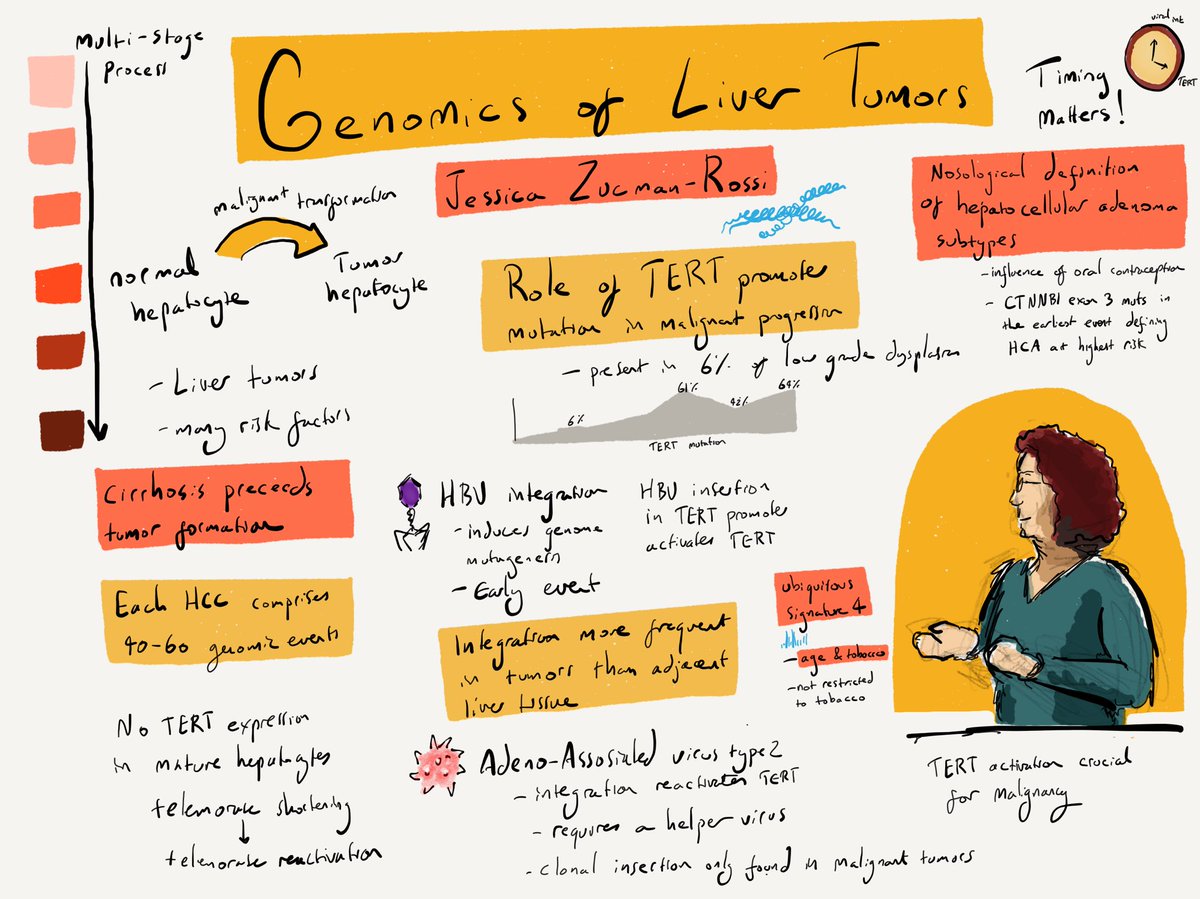 Multi-Stage
Process
Genomics of Liver Tumors
Timing
Matters!
viral int
TERT
Jessica Zucman-Rossi
malignant transformation
normal
hepatocyte
Tumor
hepatocyte
- Liver tumors
- many risk factors
Cirrhosis preceeds
tumor formation
Each HCC comprises
40-60 genomic events
No TERT expression
in mature hepatocytes
telemorase shortening
telemorase reactivation
Role of TERT promoter
mutation in malignant progression
- present in 6% of low grade dysplasia
6%
61%
42%
64%
TERT mutation
HBV integration
- induces genome
mutagenesis
- Early event
HBV insertion
in TERT promoter
activates TERT
Integration more frequent
in tumors than adjacent
liver tissue
Adeno-Assosiated virus type 2
- integration reactivates TERT
- requires a helper virus
- clonal insertion only found in malignant tumors
ubiquitous
signature 4
- age & tobacco
- not restricted
to tobacco
Nosological definition
of hepatocellular adenoma
subtypes
- influence of oral contraception
- CTNNB1 exon 3 muts in
the earliest event defining
HCA at highest risk
TERT activation crucial
for malignancy